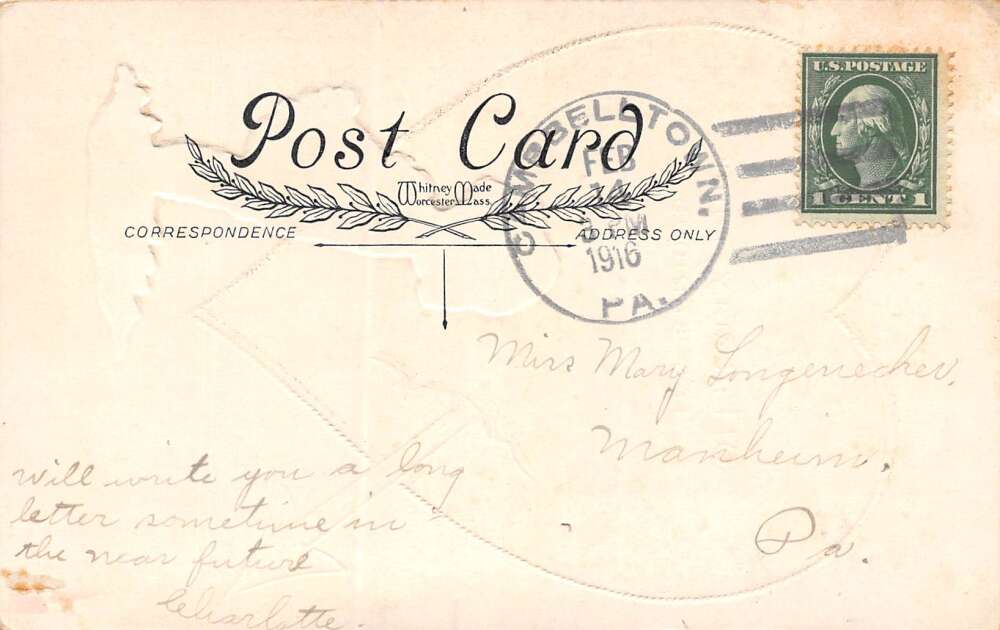 Post Card
Whitney Made
Worcester Mass.
CORRESPONDENCE
ADDRESS ONLY
CAMPBELLTOWN,
FEB
M
1916
PA.
U.S. POSTAGE
1 CENT 1
Miss Mary Longenecker,
Manheim,
Pa.
will write you a long
letter sometime in
the near future
Charlotte.